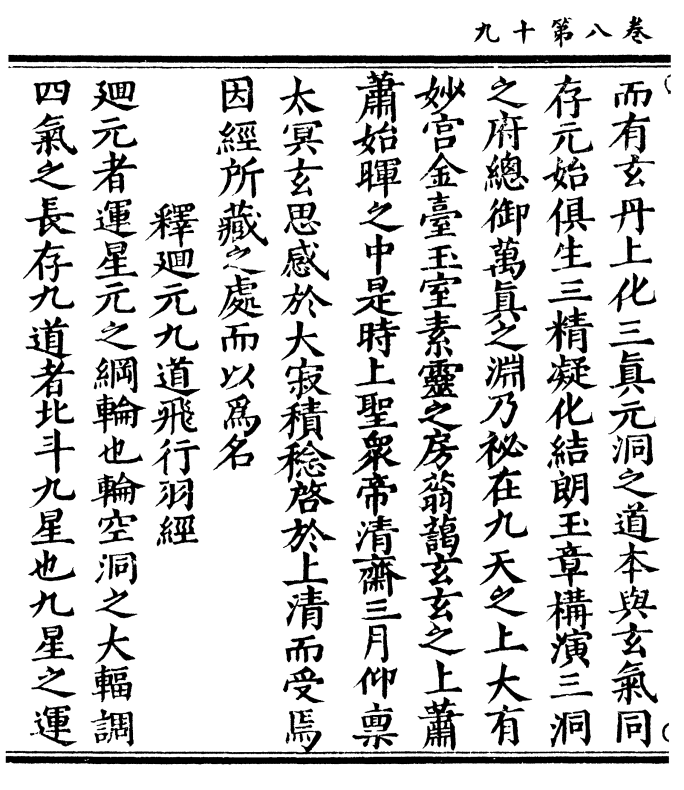 卷八第十九
而有玄丹上化三真元洞之道本與玄氣同
存元始俱生三精凝化結朗玉章構演三洞
之府總御萬真之淵乃祕在九天之上大有
妙宮金臺玉室素靈之房蓊藹玄玄之上蕭
蕭始暉之中是時上聖衆帝清齋三月仰禀
太冥玄思感於大寂積稔啓於上清而受焉
因經所藏之處而以爲名
釋廻元九道飛行羽經
廻元者運星元之綱輪也輪空洞之大輻調
四氣之長存九道者北斗九星也九星之運